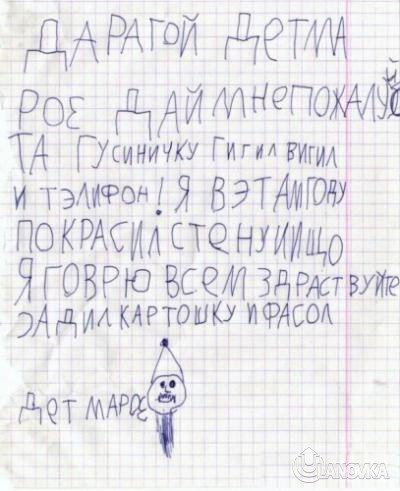 ДАРАГОЙ ДЕТМА
РОЕ ДАЙ МНЕ ПОХАЛУЙС
ТА ГУСИНИЧКУ ГИГИЛ ВИГИЛ
И ТЭЛИФОН! Я В ЭТАМ ГОДУ
ПОКРАСИЛ СТЕНУ И ИЩО
Я ГОВРЮ ВСЕМ ЗДРАСТВУЙТЕ
ЭАДИЛ КАРТОШКУ И ФАСОЛ
ДЕТ МАРОЕ
ULANOVKA